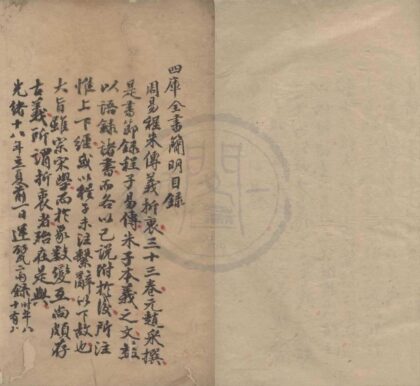 四庫全書簡明目錄
周易程朱傳義折衷三十三卷元趙采撰
是書節錄程子易傳朱子本義之文益
以語錄諸書而各以己說附於後所注
惟上下經蓋以程子未注繫辭以下故也
大旨雖宗宋學而於象數變互尚頗存
古義所謂折衷者殆在是歟
光緒十八年立夏前一日蓮錄時年八十有八